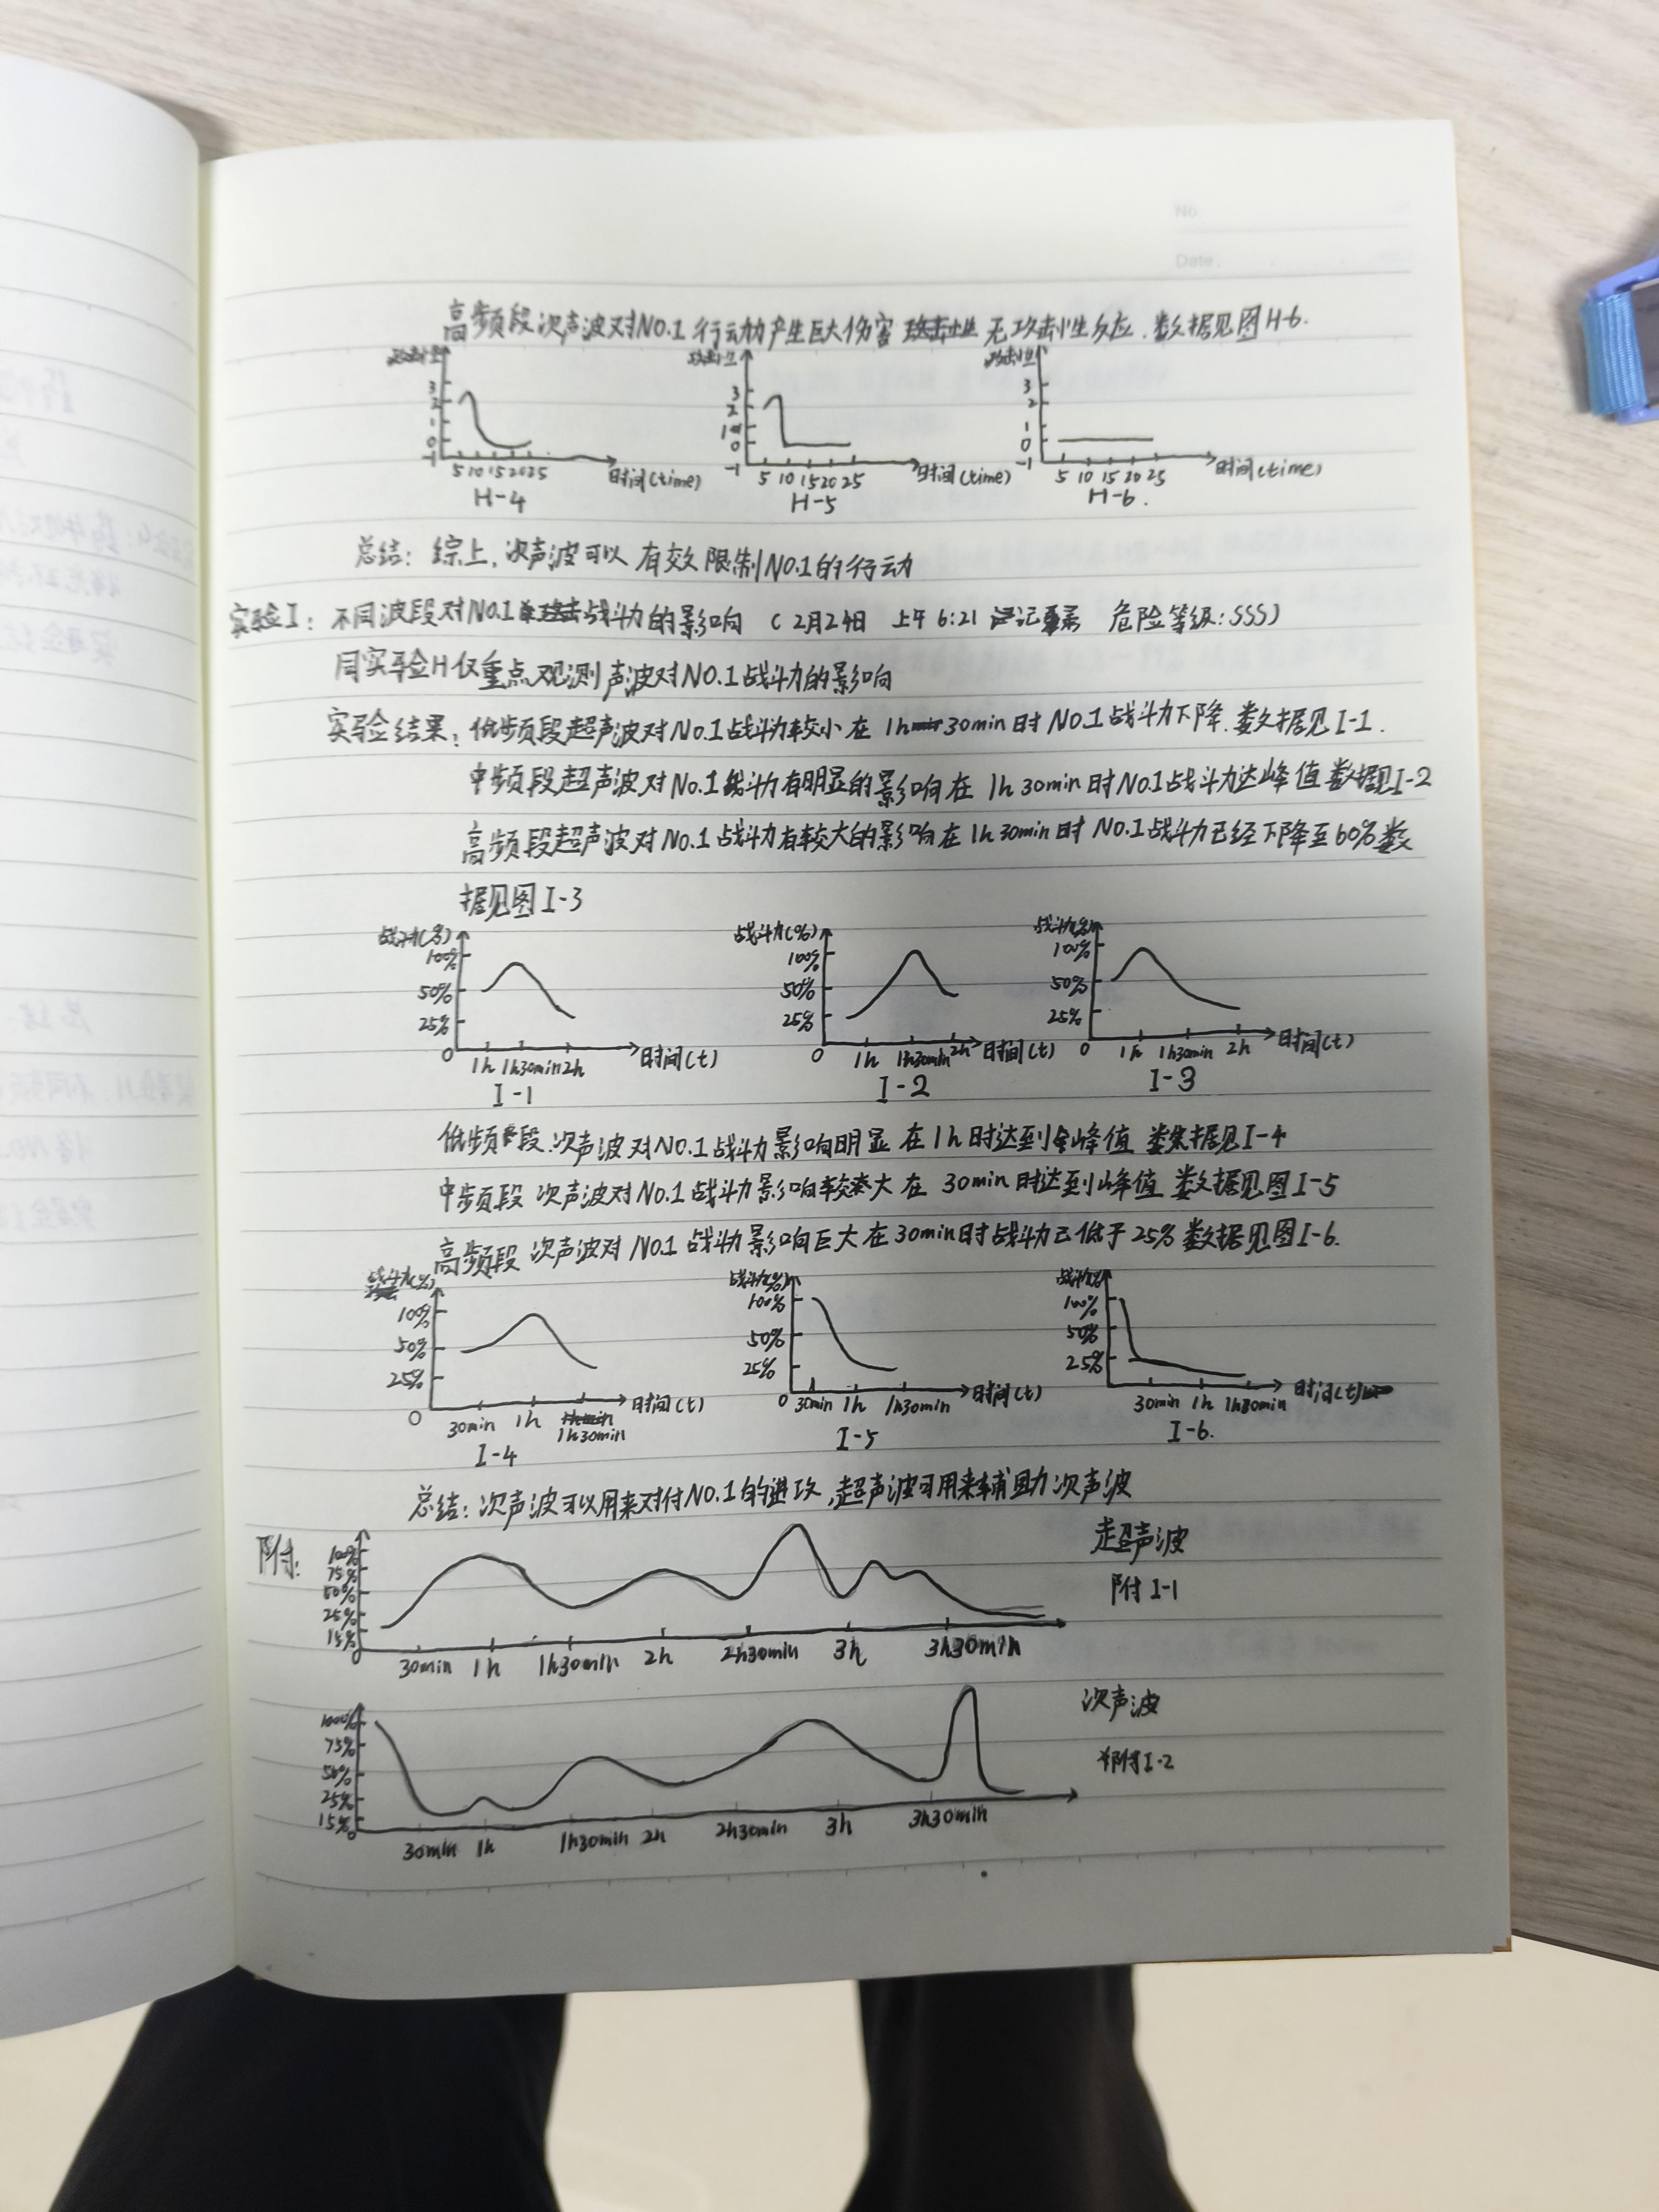 No.
Date.
高频段次声波对NO.1行动力产生巨大伤害 无攻击性反应.数据见图H-6.
攻击性 攻击性 攻击性
3 3 3
2 2 2
1 1 1
0 0 0
-1 -1 -1
5 10 15 20 25 时间(time) 5 10 15 20 25 时间(time) 5 10 15 20 25 时间(time)
H-4 H-5 H-6.
总结: 综上,次声波可以有效限制NO.1的行动
实验I: 不同波段对NO.1战斗力的影响 (2月24日 上午6:21 记录 危险等级:SSS)
同实验H仅重点观测声波对NO.1战斗力的影响
实验结果: 低频段超声波对No.1战斗力较小在1h30min时NO.1战斗力下降.数据见I-1.
中频段超声波对No.1战斗力有明显的影响在1h30min时No.1战斗力达峰值数据见I-2
高频段超声波对No.1战斗力有较大的影响在1h30min时NO.1战斗力已经下降至60%数
据见图I-3
战斗力(%) 战斗力(%) 战斗力(%)
100% 100% 100%
50% 50% 50%
25% 25% 25%
0 1h 1h30min 2h 时间(t) 0 1h 1h30min 2h 时间(t) 0 1h 1h30min 2h 时间(t)
I-1 I-2 I-3
低频段次声波对NO.1战斗力影响明显在1h时达到峰值 数据见I-4
中频段次声波对No.1战斗力影响较大在30min时达到峰值 数据见图I-5
高频段次声波对NO.1战斗力影响巨大在30min时战斗力已低于25%数据见图I-6.
战斗力(%) 战斗力(%) 战斗力(%)
100% 100% 100%
50% 50% 50%
25% 25% 25%
0 30min 1h 1h30min 时间(t) 0 30min 1h 1h30min 时间(t) 30min 1h 1h30min 时间(t)
I-4 I-5 I-6.
总结: 次声波可以用来对付NO.1的进攻,超声波可用来辅助次声波
附: 超声波
附I-1
100%
75%
50%
25%
15%
0 30min 1h 1h30min 2h 2h30min 3h 3h30min
次声波
附I-2
100%
75%
50%
25%
15%
0 30min 1h 1h30min 2h 2h30min 3h 3h30min